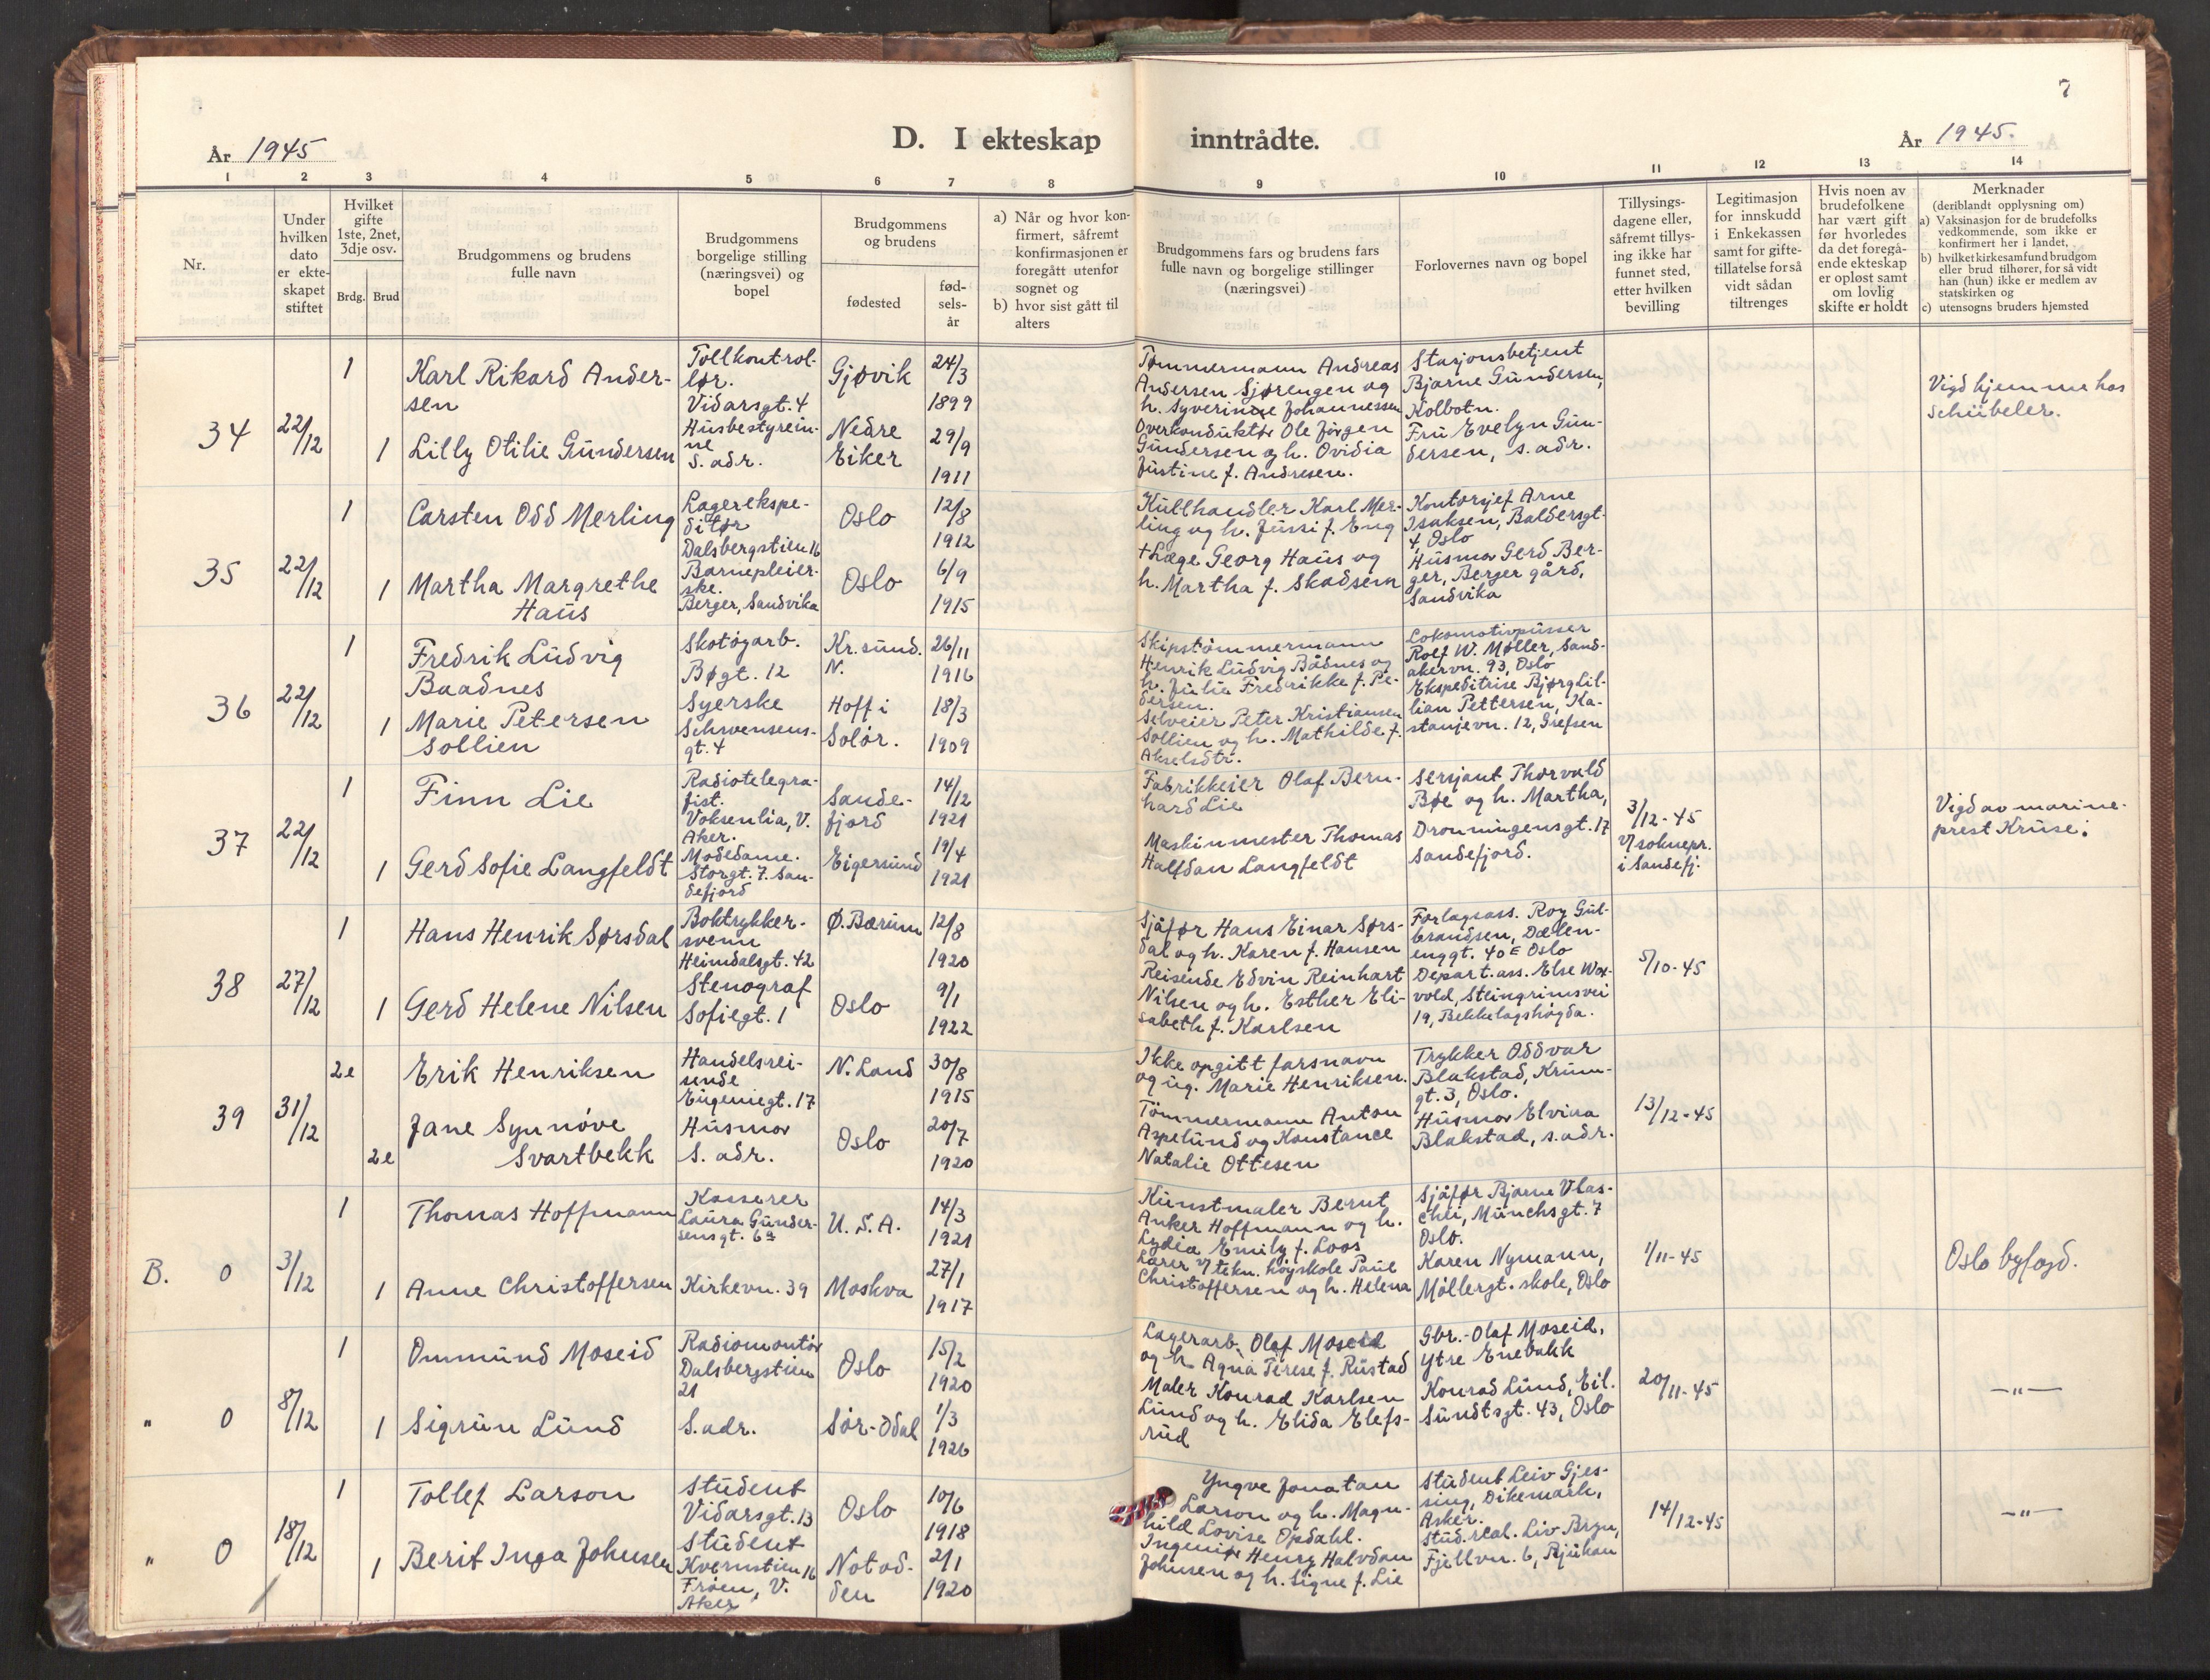 7
D. I ekteskap inntrådte.
År 1945
År 1945.
1 2 3 4 5 6 7 8 9 10 11 12 13 14
Nr.
Under
hvilken
dato
er ekte-
skapet
stiftet
Hvilket
gifte
1ste, 2net,
3dje osv.
Brdg. Brud
Brudgommens og brudens
fulle navn
Brudgommens
borgelige stilling
(næringsvei) og
bopel
Brudgommens
og brudens
fødested
fød-
sels-
år
a) Når og hvor kon-
firmert, såfremt
konfirmasjonen er
foregått utenfor
sognet og
b) hvor sist gått til
alters
Brudgommens fars og brudens fars
fulle navn og borgelige stillinger
(næringsvei)
Forlovernes navn og bopel
Tillysings-
dagene eller,
såfremt tillys-
ing ikke har
funnet sted,
etter hvilken
bevilling
Legitimasjon
for innskudd
i Enkekassen
samt for gifte-
tillatelse for så
vidt sådan
tiltrenges
Hvis noen av
brudefolkene
har vært gift
før hvorledes
da det foregå-
ende ekteskap
er opløst samt
om lovlig
skifte er holdt
Merknader
(deriblandt opplysning om)
a) Vaksinasjon for de brudefolks
vedkommende, som ikke er
konfirmert her i landet,
b) hvilket kirkesamfund brudgom
eller brud tilhører, for så vidt
han (hun) ikke er medlem av
statskirken og
c) utensogns bruders hjemsted
34
22/12
1
Karl Rikard Ander-
sen
Tollkontrol-
lør.
Vidarsgt. 4
Gjøvik
24/3
1899
1
Lilly Otilie Gundersen
Husbestyrein-
ne
S. adr.
Nedre
Eiker
29/9
1911
Tømmermann Andreas
Andersen Sjørengen og
h. Syverinne Johannessen
Overkonduktør Ole Jørgen
Gundersen og h. Ovidia
Justine f. Andresen.
Stasjonsbetjent
Bjarne Gundersen,
Kolbotn.
Fru Evelyn Gun-
dersen, s. adr.
Vigd hjemme hos
Schübeler.
35
22/12
1
Carsten Odd Merling
Lagerekspe-
ditør
Dalsbergstien 16
Oslo
12/8
1912
1
Martha Margrethe
Haus
Barnepleier-
ske.
Berger, Sandvika
Oslo
6/9
1915
Kullhandler Karl Mer-
ling og h. Jussi f. Eng
+Læge Georg Haus og
h. Martha f. Skadsem
Kontorsjef Arne
Isaksen, Baldersgt.
4, Oslo
Husmor Gerd Ber-
ger, Berger gård,
Sandvika
36
22/12
1
Fredrik Ludvig
Baadnes
Skotøyarb.
Bøgt. 12
Kr.sund.
N.
26/11
1916
1
Marie Petersen
Sollien
Syerske
Schwensens-
gt. 4
Hoff i
Solør.
18/3
1909
Skipstømmermann
Henrik Ludvig Bådnes og
h. Julie Fredrikke f. Pe-
dersen.
Selveier Peter Kristiansen
Sollien og h. Mathilde f.
Akselsdtr.
Lokomotivpusser
Rolf W. Møller, Sand-
akervn. 93, Oslo
Ekspeditrise Bjørg Lil-
lian Pettersen, Ka-
stanjevn. 12, Grefsen
37
22/12
1
Finn Lie
Radiotelegra-
fist.
Voksenlia, V.
Aker.
Sande-
fjord
14/12
1921
1
Gerd Sofie Langfeldt
Modedame.
Storgt. 7. San-
defjord
Eigersund
19/4
1921
Fabrikkeier Olaf Bern-
hard Lie
Maskinmester Thomas
Halfdan Langfeldt
Sersjant Thorvald
Bøe og h. Martha,
Dronningensgt. 17
Sandefjord.
3/12-45
v/ soknepr.
i Sandefj.
Vigd av marine-
prest Kruse.
38
27/12
1
Hans Henrik Sørsdal
Boktrykker-
svenn
Heimdalsgt. 42
Ø. Bærum
12/8
1920
1
Gerd Helene Nilsen
Stenograf
Sofiegt. 1
Oslo
9/1
1922
Sjåfør Hans Einar Sørs-
dal og h. Karen f. Hansen
Reisende Edvin Reinhart
Nilsen og h. Esther Eli-
sabeth f. Karlsen
Forlagsass. Roy Gul-
brandsen, Dælen-
enggt. 40E Oslo
Depart. ass. Else Wox-
vold, Steingrimsvei
19, Bekkelagshøgda.
5/10-45
39
31/12
2e
Erik Henriksen
Handelsrei-
sende
Eugeniegt. 17
N. Land
30/8
1915
2e
Jane Synnøve
Svartbekk
Husmor
S. adr.
Oslo
20/7
1920
Ikke opgitt farsnavn
og ug. Marie Henriksen.
Tömmermann Anton
Aspelund og Konstance
Natalie Ottesen
Trykker Oddvar
Blakstad, Krum-
gt. 3, Oslo.
Husmor Elvira
Blakstad, s. adr.
13/12-45
B. 0
3/12
1
Thomas Hoffmann
Kasserer
Laura Gunder-
sensgt. 6a
U.S.A.
14/3
1921
1
Anne Christoffersen
Kirkevn. 39
Moskva
27/1
1917
Kunstmaler Bernt
Anker Hoffmann og h.
Lydia Emily f. Loos
Lærer v/ tekn. høgskole Paul
Christoffersen og h. Helena
Sjåfør Bjarne Vlas-
chei, Munchsgt. 7
Oslo.
Karen Nymann,
Møllergt. skole, Oslo
1/11-45
Oslo byfogd.
" 0
8/12
1
Ommund Moseid
Radiomontør
Dalsbergstien
21
Oslo
15/2
1920
1
Sigrun Lund
S. adr.
Sør-Odal
1/3
1926
Lagerarb. Olaf Moseid
og h. Agna Terese f. Rustad
Maler Konrad Karlsen
Lund og h. Elida Elefs-
rud
Gbr. Olaf Moseid,
Ytre Enebakk
Konrad Lund, Eil.
Sundtsgt. 43, Oslo
20/11-45
—"—
" 0
18/12
1
Tollef Larson
Student
Vidarsgt. 13
Oslo
10/6
1918
1
Berit Inga Johnsen
Student
Kvernstien 16
Frøen, V.
Aker
Notod-
den
2/1
1920
Yngve Jonatan
Larson og h. Magn-
hild Lovise Opdahl.
Ingeniør Henry Halvdan
Johnsen og h. Signe f. Lie
Student Leiv Gjes-
sing, Dikemark,
Asker.
Stud. real. Liv Bryn,
Fjellvn. 6, Rjukan
14/12-45
—"—